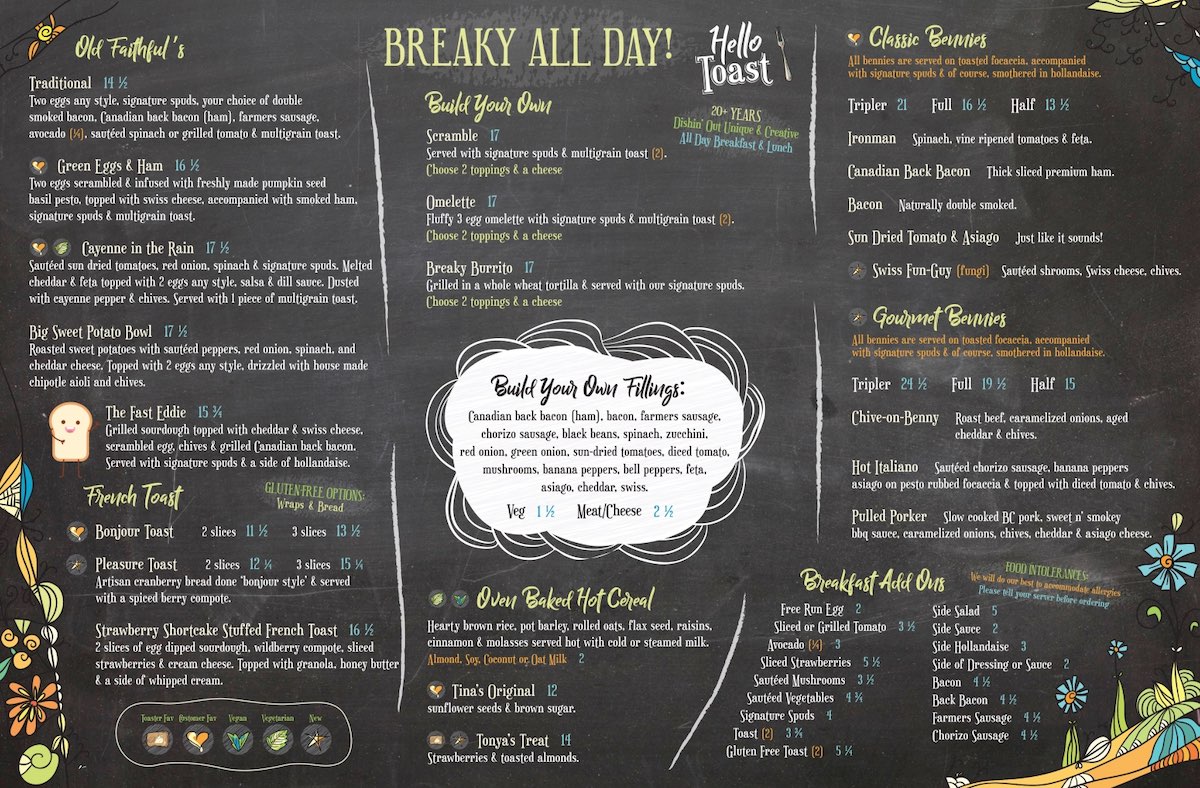 Old Faithful's
Traditional 14 ½
Two eggs any style, signature spuds, your choice of double
smoked bacon, Canadian back bacon (ham), farmers sausage,
avocado (¼), sautéed spinach or grilled tomato & multigrain toast.
Green Eggs & Ham 16 ½
Two eggs scrambled & infused with freshly made pumpkin seed
basil pesto, topped with swiss cheese, accompanied with smoked ham,
signature spuds & multigrain toast.
Cayenne in the Rain 17 ½
Sautéed sun dried tomatoes, red onion, spinach & signature spuds. Melted
cheddar & feta topped with 2 eggs any style, salsa & dill sauce. Dusted
with cayenne pepper & chives. Served with 1 piece of multigrain toast.
Big Sweet Potato Bowl 17 ½
Roasted sweet potatoes with sautéed peppers, red onion, spinach, and
cheddar cheese. Topped with 2 eggs any style, drizzled with house made
chipotle aioli and chives.
The Fast Eddie 15 ¾
Grilled sourdough topped with cheddar & swiss cheese,
scrambled egg, chives & grilled Canadian back bacon.
Served with signature spuds & a side of hollandaise.
French Toast
GLUTEN-FREE OPTIONS:
Wraps & Bread
Bonjour Toast 2 slices 11 ½ 3 slices 13 ½
Pleasure Toast 2 slices 12 ¼ 3 slices 15 ¼
Artisan cranberry bread done 'bonjour style' & served
with a spiced berry compote.
Strawberry Shortcake Stuffed French Toast 16 ½
2 slices of egg dipped sourdough, wildberry compote, sliced
strawberries & cream cheese. Topped with granola, honey butter
& a side of whipped cream.
Toaster Fav Costomer Fav Vegan Vegetarian New
BREAKY ALL DAY!
Hello
Toast
20+ YEARS
Dishin' Out Unique & Creative
All Day Breakfast & Lunch
Build Your Own
Scramble 17
Served with signature spuds & multigrain toast (2).
Choose 2 toppings & a cheese
Omelette 17
Fluffy 3 egg omelette with signature spuds & multigrain toast (2).
Choose 2 toppings & a cheese
Breaky Burrito 17
Grilled in a whole wheat tortilla & served with our signature spuds.
Choose 2 toppings & a cheese
Build Your Own Fillings:
Canadian back bacon (ham), bacon, farmers sausage,
chorizo sausage, black beans, spinach, zucchini,
red onion, green onion, sun-dried tomatoes, diced tomato,
mushrooms, banana peppers, bell peppers, feta,
asiago, cheddar, swiss.
Veg 1 ½ Meat/Cheese 2 ½
Oven Baked Hot Cereal
Hearty brown rice, pot barley, rolled oats, flax seed, raisins,
cinnamon & molasses served hot with cold or steamed milk.
Almond, Soy, Coconut or Oat Milk 2
Tina's Original 12
sunflower seeds & brown sugar.
Tonya's Treat 14
Strawberries & toasted almonds.
Classic Bennies
All bennies are served on toasted focaccia, accompanied
with signature spuds & of course, smothered in hollandaise.
Tripler 21 Full 16 ½ Half 13 ½
Ironman Spinach, vine ripened tomatoes & feta.
Canadian Back Bacon Thick sliced premium ham.
Bacon Naturally double smoked.
Sun Dried Tomato & Asiago Just like it sounds!
Swiss Fun-Guy (fungi) Sautéed shrooms, Swiss cheese, chives.
Gourmet Bennies
All bennies are served on toasted focaccia, accompanied
with signature spuds & of course, smothered in hollandaise.
Tripler 24 ½ Full 19 ½ Half 15
Chive-on-Benny Roast beef, caramelized onions, aged
cheddar & chives.
Hot Italiano Sautéed chorizo sausage, banana peppers
asiago on pesto rubbed focaccia & topped with diced tomato & chives.
Pulled Porker Slow cooked BC pork, sweet n' smokey
bbq sauce, caramelized onions, chives, cheddar & asiago cheese.
Breakfast Add Ons
FOOD INTOLERANCES:
We will do our best to accommodate allergies
Please tell your server before ordering
Free Run Egg 2
Sliced or Grilled Tomato 3 ½
Avocado (¼) 3
Sliced Strawberries 5 ½
Sautéed Mushrooms 3 ½
Sautéed Vegetables 4 ¾
Signature Spuds 4
Toast (2) 3 ¾
Gluten Free Toast (2) 5 ¼
Side Salad 5
Side Sauce 2
Side Hollandaise 3
Side of Dressing or Sauce 2
Bacon 4 ½
Back Bacon 4 ½
Farmers Sausage 4 ½
Chorizo Sausage 4 ½